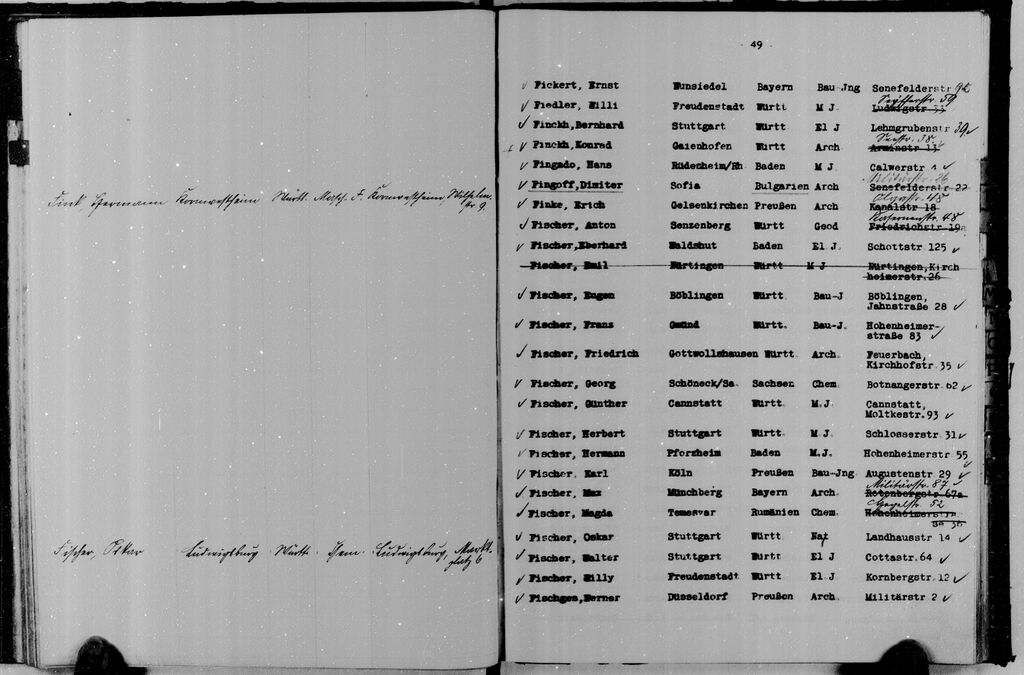 Fink Hermann Kornwestheim Württ. Masch. J. Kornwestheim, Wilhelm
str 9.
Fischer, Oskar Ludwigsburg Württ. Chem. Ludwigsburg, Markt-
platz 6
49
Fickert, Ernst Wunsiedel Bayern Bau-Jng Senefelderstr
59
Fiedler, Willi Freudenstadt Württ M J Ludwigstr
Finckh, Bernhard Stuttgart Württ El J Lehmgrubenstr 39
Seestr. 38
Finckh, Konrad Gaienhofen Württ Arch
Fingado, Hans Rüdesheim/Rh Baden M J Calwerstr
Militärstr. 26
Fingoff, Dimiter Sofia Bulgarien Arch Senefelderstr 22
Olgastr. 45
Finke, Erich Gelsenkirchen Preußen Arch Kanalstr 18
Kasernenstr. 48
Fischer, Anton Senzenberg Württ Geod Friedrichstr 19a
Fischer, Eberhard Waldshut Baden El J. Schottstr 125
Fischer, Emil Nürtingen Württ M J Nürtingen, Kirch
heimerstr. 26
Fischer, Eugen Böblingen Württ. Bau-J Böblingen,
Jahnstraße 28
Fischer, Franz Gmünd Württ. Bau-J. Hohenheimer-
straße 83
Fischer, Friedrich Gottwollshausen Württ. Arch. Feuerbach,
Kirchhofstr. 35
Fischer, Georg Schöneck/Sa. Sachsen Chem. Botnangerstr. 62
Fischer, Günther Cannstatt Württ. M.J. Cannstatt,
Moltkestr. 93
Fischer, Herbert Stuttgart Württ. M J Schlosserstr 31
Fischer, Hermann Pforzheim Baden M.J. Hohenheimerstr 55
Fischer, Karl Köln Preußen Bau-Jng Augustenstr 29
Militärstr. 87
Fischer, Max Münchberg Bayern Arch. Rotenbergstr 67a
Hegelstr. 52
Fischer, Magda Temesvar Rumänien Chem. Hohenheimerstr
Fischer, Oskar Stuttgart Württ Nat Landhausstr 14
Fischer, Walter Stuttgart Württ El J Cottastr. 64
Fischer, Willy Freudenstadt Württ El J Kornbergstr. 12
Fischgen, Werner Düsseldorf Preußen Arch. Militärstr 2